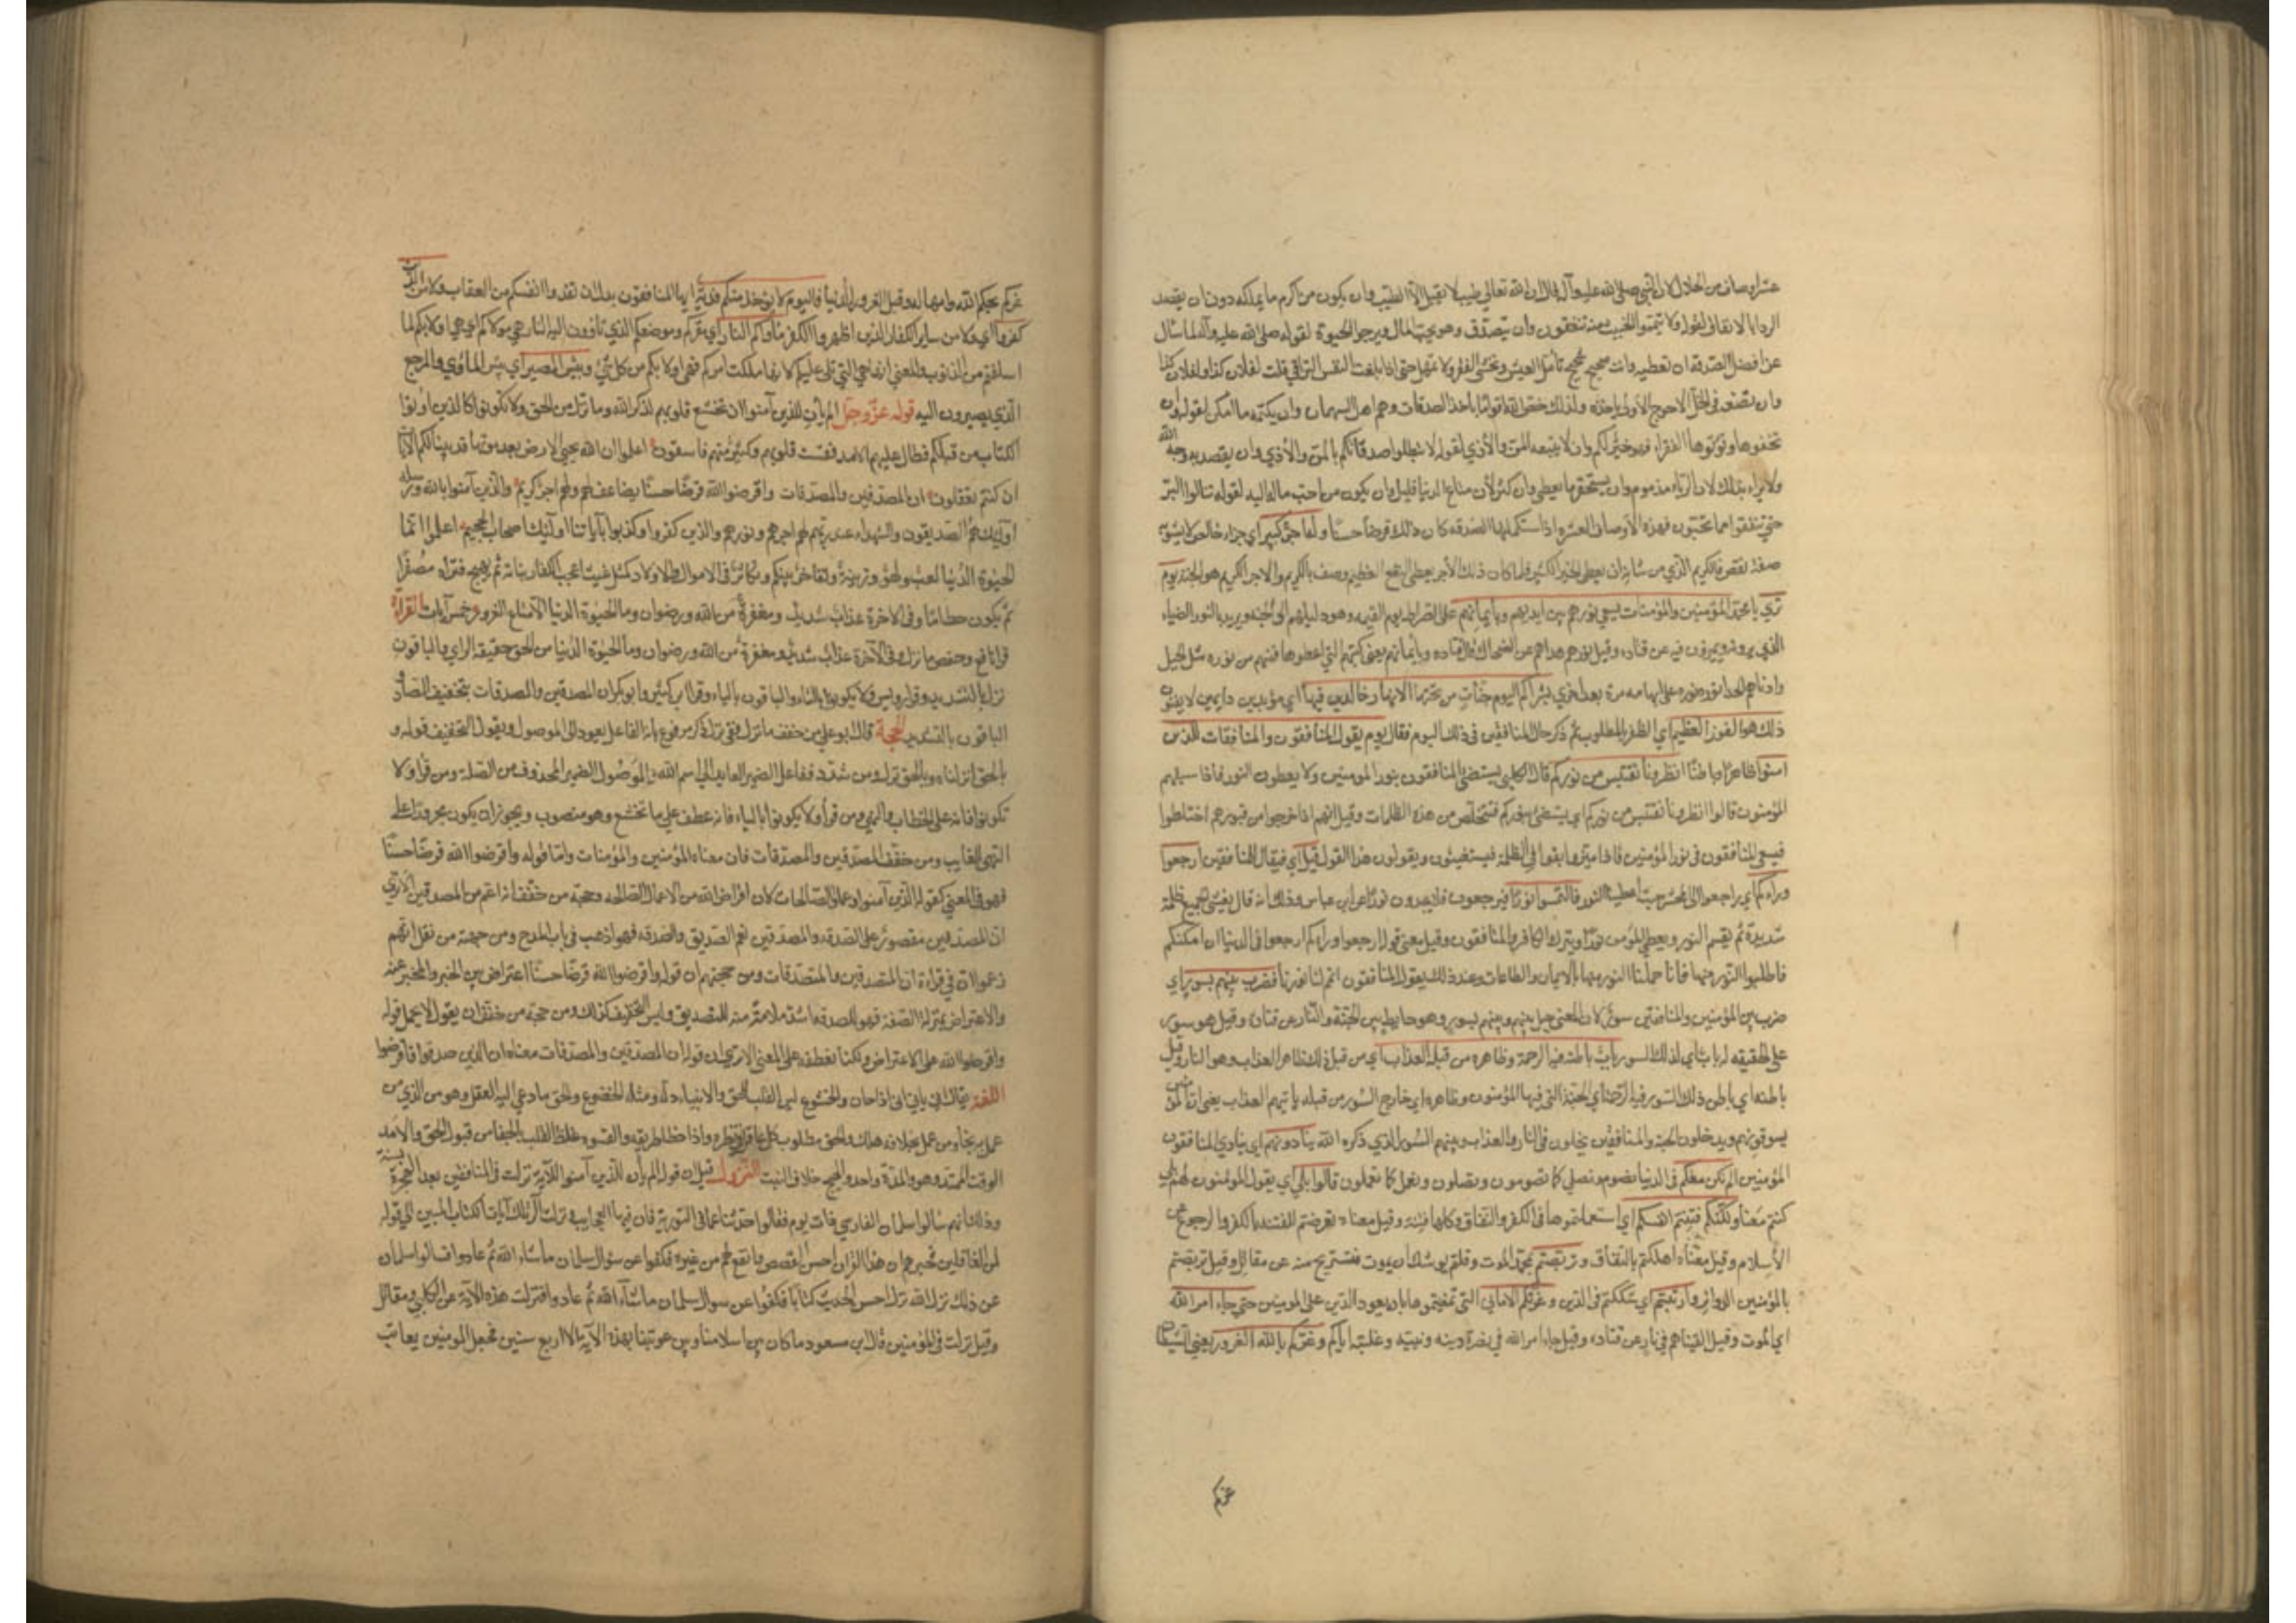 عشرا وصاف من الحلال لان النبي صلى الله عليه وآله قال ان الله تعالي طيب لا يقبل الا الطيب وان يكون من اكرم ما يملكه دون ان يقصد
الردي بالانفاق لقوله ولا تيمموا الخبيث منه تنفقون وان يتصدق وهو يحب المال ويرجو الحيوة لقوله صلى الله عليه وآله لما سال
عن افضل الصدقة ان تعطيه وانت صحيح شحيح تامل العيش وتخشي الفقر ولا تمهل حتى اذا بلغت النفس التراقي قلت لفلان كذا ولفلان كذا
وان يضعه في الاحوج الاولي باخذه ولذلك خص الله اقواما باخذ الصدقات وهم اهل السهمان وان يكتمه ما امكن لقوله وان
تخفوها وتؤتوها الفقراء فهو خير لكم وان لا يتبعه المن والاذي لقوله لا تبطلوا صدقاتكم بالمن والاذي وان يقصد به وجه الله
ولا يرائ بذلك لان الرياء مذموم وان يستحقر ما يعطي وان كثر لان متاع الدنيا قليل وان يكون من احب ماله اليه لقوله لن تنالوا البر
حتي تنفقوا مما تحبون فهذه الاوصاف العشرة اذا استكملها الصدقة كان ذلك قرضا حسنا وله اجر كريم اي جزاء خالص لا يشوبه
صفة نقص فالكريم الذي من شانه ان يعطي الخير الكثير فلما كان ذلك الاجر يعطي النفع العظيم وصف بالكريم والاجر الكريم هو الجنة يوم
تري يا محمد المؤمنين والمؤمنات يسعي نورهم بين ايديهم وبايمانهم علي الصراط يوم القيمة وهو دليلهم الي الجنة ويريد بالنور الضياء
الذي يرونه ويمرون فيه عن قتادة وقيل نورهم هداهم عن الضحاك قال قتادة وبايمانهم يعني كتبهم التي اعطوها فمنهم من نوره مثل الجبل
وادناهم نورا نوره علي ابهامه مرة بعد اخري بشراكم اليوم جنات من تحتها الانهار خالدين فيها اي مؤبدين دايمين لا يفنون
ذلك هو الفوز العظيم اي الظفر بالمطلوب ثم ذكر حال المنافقين في ذلك اليوم فقال يوم يقول المنافقون والمنافقات للذين
امنوا ظاهرا وباطنا انظرونا نقتبس من نوركم قال الكلبي يستضئ المنافقون بنور المومنين ولا يعطون النور فاذا سبقهم
المؤمنون قالوا انظرونا نقتبس من نوركم اي نستضئ بنوركم فنتخلص من هذه الظلمات وقيل انهم اذا خرجوا من قبورهم اختلطوا
فيسعي المنافقون في نور المؤمنين فاذا ميزوا بقوا في الظلمة فيستغيثون ويقولون هذا القول قيل اي فيقال للمنافقين ارجعوا
وراءكم اي ارجعوا الي المحشر حيث اعطينا النور فالتمسوا نورا فيرجعون فلا يجدون نورا عن ابن عباس وذلك انه قال يغشي الجميع ظلمة
شديدة ثم يقسم النور ويعطي المؤمن نورا ويترك الكافر والمنافقون وقيل معني قوله ارجعوا وراءكم ارجعوا في الدنيا ان امكنكم
فاطلبوا النور منها فانا حملنا النور منها بالايمان والطاعات وعند ذلك يقول المنافقون اتمم لنا نورنا فضرب بينهم بسور اي
ضرب بين المؤمنين والمنافقين سور كان المعني حيل بينهم وبينهم بسور وهو حايط بين الجنة والنار عن قتادة وقيل هو سور
علي الحقيقة له باب اي لذلك السور باب باطنه فيه الرحمة وظاهره من قبله العذاب اي من قبل ذلك الظاهر العذاب وهو النار وقيل
باطنه اي باطن ذلك السور فيه الرحمة اي الجنة التي فيها المؤمنون وظاهره اي خارج السور من قبله ياتيهم العذاب يعني ان المؤمنين
يسبقونهم ويدخلون الجنة والمنافقين يدخلون في النار والعذاب وبينهم السور الذي ذكره الله ينادونهم اي ينادي المنافقون
المؤمنين الم نكن معكم في الدنيا نصوم ونصلي كما تصومون وتصلون ونعمل كما تعملون قالوا بلي اي يقول المؤمنون لهم بلي
كنتم معنا ولكنكم فتنتم انفسكم اي استعملتموها في الكفر والنفاق وكلها فتنة وقيل معناه تعرضتم للفتنة بالكفر والرجوع عن
الاسلام وقيل معناه اهلكتم بالنفاق وتربصتم بمحمد الموت وقلتم يوشك ان يموت فنستريح منه عن مقاتل وقيل تربصتم
بالمؤمنين الدواير وارتبتم اي شككتم في الدين وغرتكم الاماني التي تمنيتموها بان يعود الدين علي المومنين حتي جاء امر الله
اي الموت وقيل القاهم في نار عن قتادة وقيل جاء امر الله في نصرة دينه ونبيه وغلبته اياكم وغركم بالله الغرور يعني الشيطان
غركم
غركم بحكم الله وامهاله وقيل الغرور الدنيا فاليوم لا يؤخذ منكم فدية ايها المنافقون بدل ان تفدوا انفسكم من العقاب ولا من الذين
كفروا اي ولا من ساير الكفار الذين اظهروا الكفر ماواكم النار اي مقركم وموضعكم الذي تاوون اليه النار هي مولاكم اي هي اولي بكم لما
اسلفتم من الذنوب والمعني انها هي التي تلي عليكم لانها ملكت امركم فهي اولي بكم من كل شئ وبئس المصير اي بئس الماوي والمرجع
الذي يصيرون اليه قوله عز وجل الم يأن للذين آمنوا ان تخشع قلوبهم لذكر الله وما نزل من الحق ولا يكونوا كالذين اوتوا
الكتاب من قبلكم فطال عليهم الامد فقست قلوبهم وكثير منهم فاسقون اعلموا ان الله يحيي الارض بعد موتها قد بينا لكم الآيات
ان كنتم تعقلون ان المصدقين والمصدقات واقرضوا الله قرضا حسنا يضاعف لهم ولهم اجر كريم والذين آمنوا بالله ورسله
اولئك هم الصديقون والشهداء عند ربهم لهم اجرهم ونورهم والذين كفروا وكذبوا بآياتنا اولئك اصحاب الجحيم اعلموا انما
الحيوة الدنيا لعب ولهو وزينة وتفاخر بينكم وتكاثر في الاموال والاولاد كمثل غيث اعجب الكفار نباته ثم يهيج فتراه مصفرا
ثم يكون حطاما وفي الاخرة عذاب شديد ومغفرة من الله ورضوان وما الحيوة الدنيا الا متاع الغرور خمس آيات القراءة
قرا نافع وحفص وما نزل من الحق خفيفة الزاي والباقون
نزل بالتشديد وقرا رويس ولا تكونوا بالتاء والباقون بالياء وقرا ابن كثير وابو بكر ان المصدقين والمصدقات بتخفيف الصاد و
الباقون بالتشديد الحجة قال ابو علي من خفف ما نزل ففي نزل ذكر مرفوع بانه الفاعل يعود الي الموصول ويقوي التخفيف قوله و
بالحق انزلناه وبالحق نزل ومن شدد ففاعل الضمير العايد الي اسم الله والموصول الضمير المحذوف من الصلة ومن قرا ولا
تكونوا فانه علي الخطاب والنهي ومن قرا ولا يكونوا بالياء فانه عطف علي ما تخشع وهو منصوب ويجوز ان يكون مجزوما علي
النهي للغايب ومن خفف المصدقين والمصدقات فان معناه المؤمنين والمؤمنات واما قوله واقرضوا الله قرضا حسنا
فهو في المعني كقوله ان الذين آمنوا وعملوا الصالحات لان اقراض الله من الاعمال الصالحة وحجة من خفف انه اعم من المصدقين الا تري
ان المصدقين مقصور علي الصدقة والمصدقين تعم التصديق والصدقة فهو اذهب في باب المدح ومن حجة من ثقل انهم
زعموا ان في قراءة ان المتصدقين والمتصدقات ومن حجتهم ان قوله واقرضوا الله قرضا حسنا اعتراض بين الخبر والمخبر عنه
والاعتراض بمنزلة الصفة فهو للصدقة اشد ملازمة منه للتصديق وليس التخفيف كذلك ومن حجة من خفف ان يقول لا نحمل قوله
واقرضوا الله علي الاعتراض ولكنا نعطفه علي المعني الا تري ان قوله ان المصدقين والمصدقات معناه ان الذين صدقوا واقرضوا
اللغة يقال اني ياني اذا حان والخشوع لين القلب للحق والانقياد له ومثله الخضوع والحق ما دعي اليه العقل وهو من الذي من
عمل به نجا ومن عمل بخلافه هلك والحق مطلوب كل عاقل واذا خطا طريقه والقسوة غلظ القلب بالجفا من قبول الحق والامد
الوقت الممتد وهو والمدة واحد والهيج خلاف النبت النزول قيل ان قوله الم يأن للذين آمنوا الآية نزلت في المنافقين بعد الهجرة بسنة
وذلك انهم سالوا سلمان الفارسي ذات يوم فقالوا حدثنا عما في التورية فان فيها العجايب فنزلت الر تلك آيات الكتاب المبين الي قوله
لمن الغافلين فخبرهم ان هذا القران احسن القصص وانفع لهم من غيره فكفوا عن سؤال سلمان ما شاء الله ثم عادوا فسالوا سلمان
عن ذلك فنزل الله نزل احسن الحديث كتابا فكفوا عن سوال سلمان ما شاء الله ثم عادوا فنزلت هذه الآية عن الكلبي ومقاتل
وقيل نزلت في المؤمنين قال ابن مسعود ما كان بين اسلامنا وبين عوتبنا بهذه الآية الا اربع سنين فجعل المومنين يعاتب